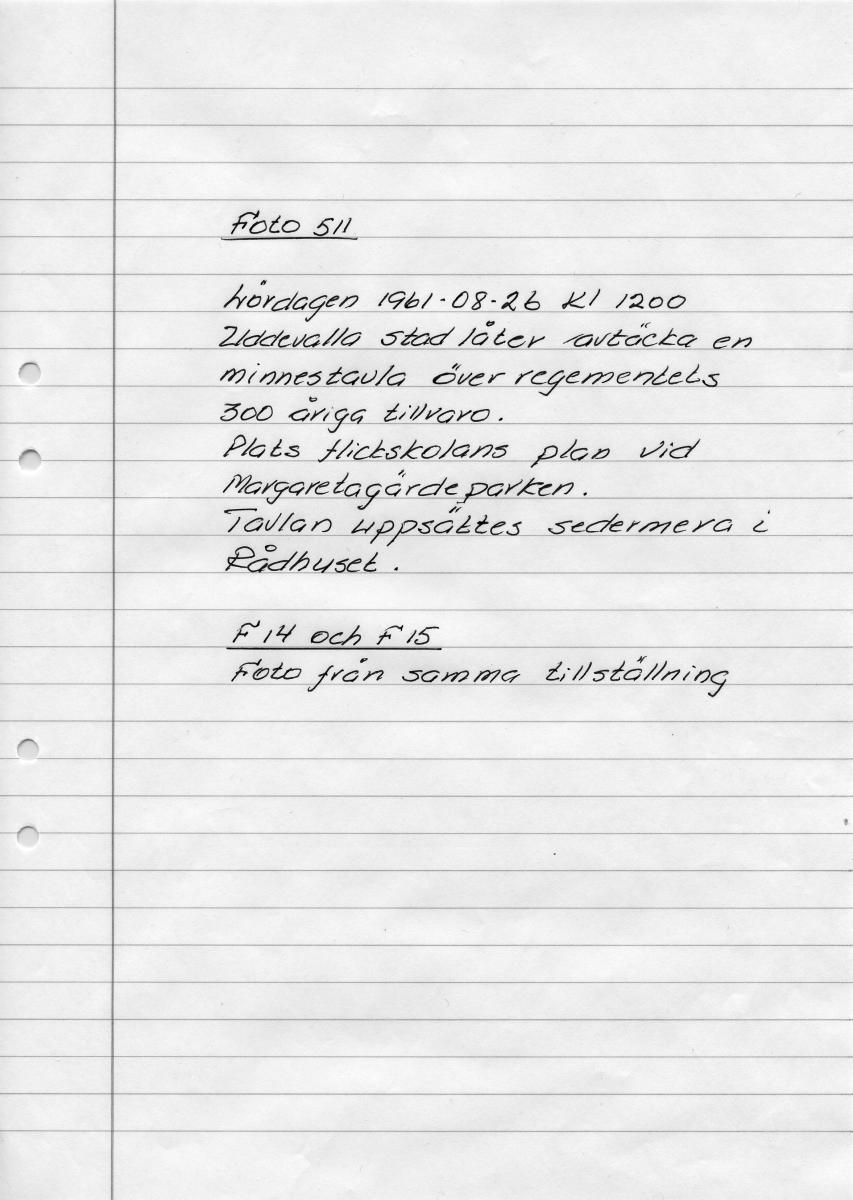 Foto 511
Lördagen 1961-08-26 Kl 1200
Uddevalla stad låter avtäcka en
minnestavla över regementets
300 åriga tillvaro.
Plats flickskolans plan vid
Margaretagärdeparken.
Tavlan uppsättes sedermera i
Rådhuset.
F 14 och F 15
Foto från samma tillställning